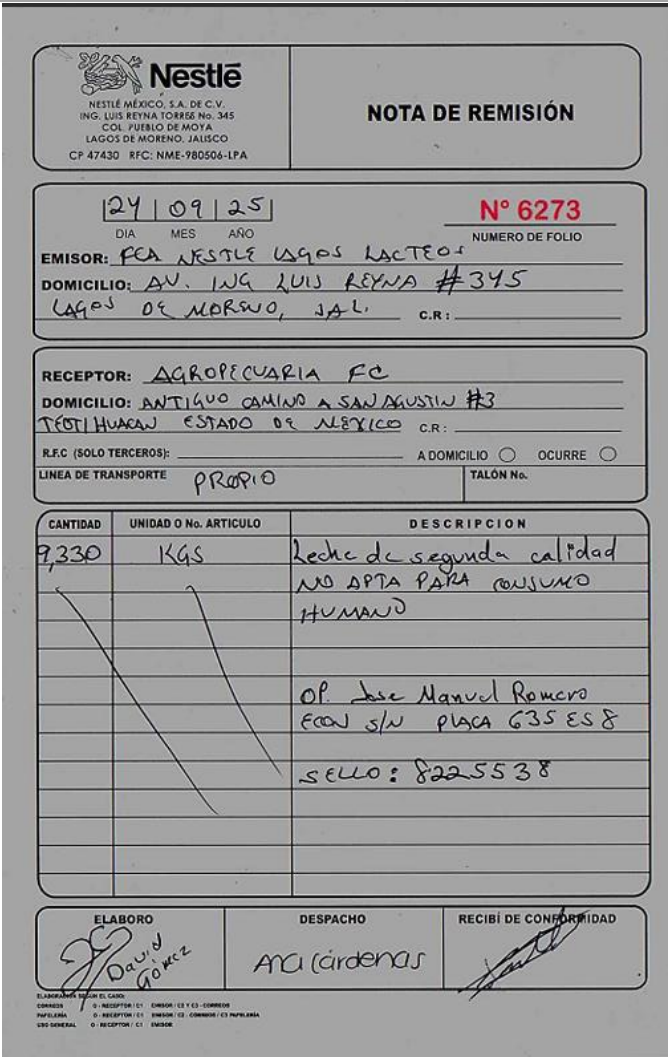 Nestlé
NESTLÉ MÉXICO, S.A. DE C.V.
ING. LUIS REYNA TORRES No. 345
COL. PUEBLO DE MOYA
LAGOS DE MORENO, JALISCO
CP 47430 RFC: NME-980506-LPA
NOTA DE REMISIÓN
24 09 25
DIA MES AÑO
N° 6273
NUMERO DE FOLIO
EMISOR: FCA NESTLE LAGOS LACTEOS
DOMICILIO: AV. ING LUIS REYNA #345
LAGOS DE MORENO, JAL. C.R:
RECEPTOR: AGROPECUARIA FC
DOMICILIO: ANTIGUO CAMINO A SAN AGUSTIN #3
TEOTIHUACAN ESTADO DE MEXICO C.R:
R.F.C (SOLO TERCEROS): A DOMICILIO OCURRE
LINEA DE TRANSPORTE PROPIO TALÓN No.
CANTIDAD UNIDAD O No. ARTICULO DESCRIPCION
9,330 KGS Leche de segunda calidad
NO APTA PARA CONSUMO
HUMANO
OP. Jose Manuel Romero
ECON S/N PLACA 635 ES 8
SELLO: 8225538
ELABORO DESPACHO RECIBÍ DE CONFORMIDAD
David Gómez
Ana Cárdenas
ELABORADOS SEGUN EL CASO:
CORREOS O - RECEPTOR / C1 EMISOR / C2 Y C3 - CORREOS
PAPELERÍA O - RECEPTOR / C1 EMISOR / C2 - CORREOS / C3 PAPELERÍA
USO GENERAL O - RECEPTOR / C1 EMISOR